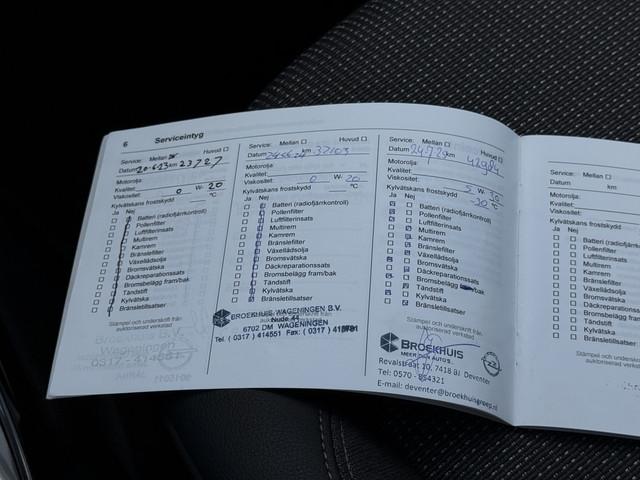 6 Serviceintyg
Service: Mellan Huvud
Datum 20-6-23 km 23727
Motorolja:
Kvalitet:
Viskositet: 0 W- 20
Kylvätskans frostskydd °C
Ja Nej
Batteri (radiofjärrkontroll)
Pollenfilter
Luftfilterinsats
Multirem
Kamrem
Bränslefilter
Växellådsolja
Bromsvätska
Däckreparationssats
Bromsbelägg fram/bak
Tändstift
Kylvätska
Bränsletillsatser
Stämpel och underskrift från
auktoriserad verkstad
Wageningen
0317-414551
Service: Mellan Huvud
Datum km 37103
Motorolja:
Kvalitet:
Viskositet: 0 W- 20
Kylvätskans frostskydd °C
Ja Nej
Batteri (radiofjärrkontroll)
Pollenfilter
Luftfilterinsats
Multirem
Kamrem
Bränslefilter
Växellådsolja
Bromsvätska
Däckreparationssats
Bromsbelägg fram/bak
Tändstift
Kylvätska
Bränsletillsatser
BROEKHUIS WAGENINGEN B.V.
Nude 44
6702 DM WAGENINGEN
Tel. ( 0317 ) 414551 Fax: ( 0317 )
Service: Mellan Huvud
Datum km 42904
Motorolja:
Kvalitet:
Viskositet: 5 W- 30
Kylvätskans frostskydd -30 °C
Ja Nej
Batteri (radiofjärrkontroll)
Pollenfilter
Luftfilterinsats
Multirem
Kamrem
Bränslefilter
Växellådsolja
Bromsvätska
Däckreparationssats
Bromsbelägg fram/bak
Tändstift
Kylvätska
Bränsletillsatser
Stämpel och underskrift från
auktoriserad verkstad
BROEKHUIS
MEER DAN AUTO'S
Revalstraat 10, 7418 BJ Deventer
Tel: 0570 - 854321
E-mail: deventer@broekhuisgroep.nl
Service: Mellan
Datum km
Motorolja:
Kvalitet:
Viskositet:
Kylvätskans frostskydd
Ja Nej
Batteri (radiofjärrkontroll)
Pollenfilter
Luftfilterinsats
Multirem
Kamrem
Bränslefilter
Växellådsolja
Bromsvätska
Däckreparationssats
Bromsbelägg fram/bak
Tändstift
Kylvätska
Bränsletillsatser
Stämpel och underskrift
auktoriserad verkstad